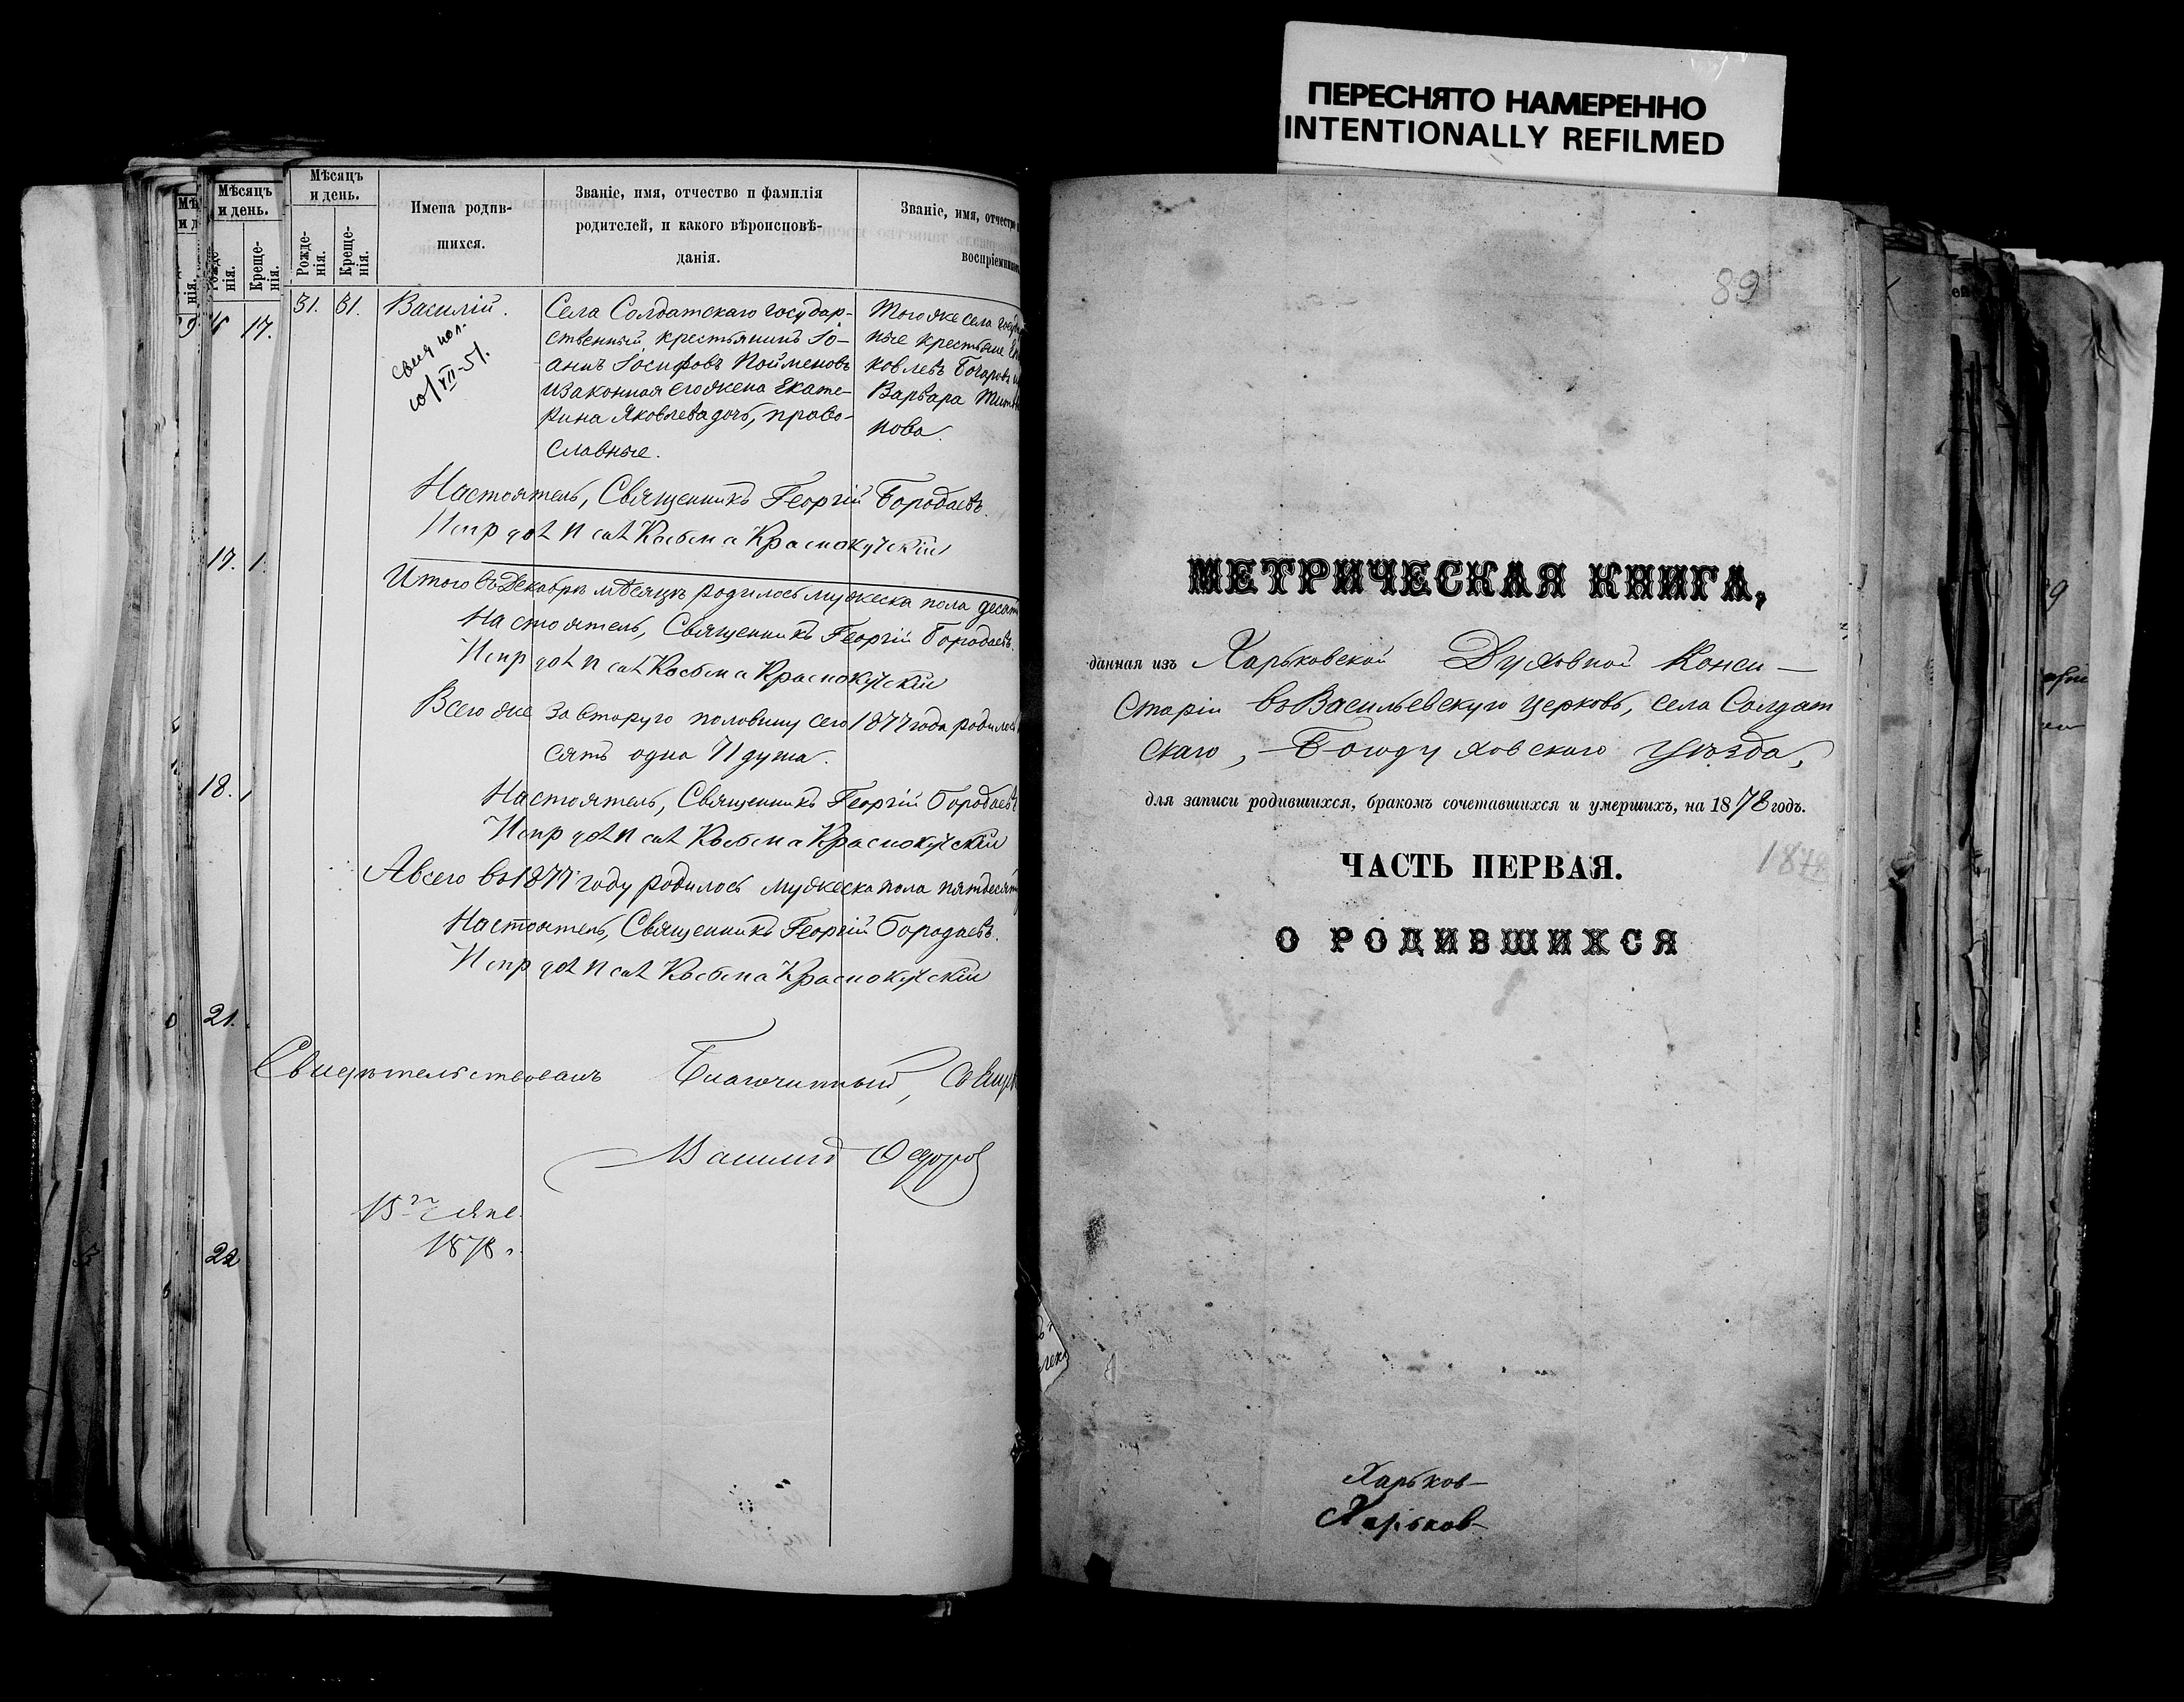 ПЕРЕСНЯТО НАМЕРЕННО
INTENTIONALLY REFILMED
Мѣсяцъ
и день.
Рожде-
нія.
Креще-
нія.
Имена родив-
шихся.
Званіе, имя, отчество и фамилія
родителей, и какого вѣроисповѣ-
данія.
Званіе, имя, отчество
воспріемников
Мѣсяцъ
и день.
Креще-
нія.
17.
31. 31. Василій.
10/XII-51.
Села Солдатскаго государ-
ственный крестьянинъ Іо-
аннъ Іосифовъ Пойменовъ
и законная его жена Екате-
рина Яковлева дочь, право-
славные.
Того же села
ные крестьяне
ковлевъ Бочаровъ
Варвара
пова.
Настоятель, Священникъ Георгій Бородаевъ.
Испр дол псал Косьма Краснокутскій
17. 1.
Итого въ Декабрѣ мѣсяцѣ родилось мужеска пола
Настоятель, Священникъ Георгій Бородаевъ.
Испр дол псал Косьма Краснокутскій
Всего же за вторую половину сего 1877 года родилось
сятъ одна 71 душа.
18.
Настоятель, Священникъ Георгій Бородаевъ
Испр дол псал Косьма Краснокутскій
А всего въ 1877 году родилось мужеска пола пятдесят
Настоятель, Священникъ Георгій Бородаевъ.
Испр дол псал Косьма Краснокутскій
21.
Свидѣтельствовалъ Благочинный,
15 Янв.
1878 г.
22
89
МЕТРИЧЕСКАЯ КНИГА,
данная изъ Харьковской Духовной Конси-
сторіи въ Васильевскую церковь, села Солдат
скаго, Богодуховскаго уѣзда,
для записи родившихся, бракомъ сочетавшихся и умершихъ, на 1878 годъ.
ЧАСТЬ ПЕРВАЯ.
1878
О РОДИВШИХСЯ
Харьков-
Харьков-